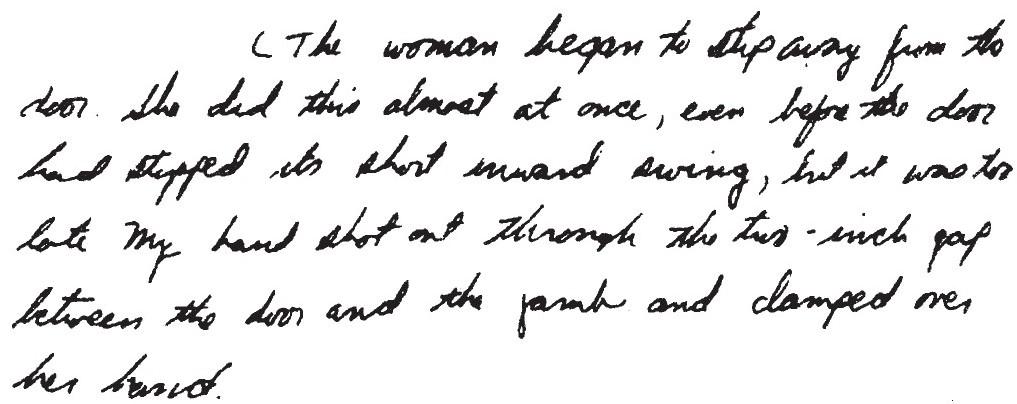 (The woman began to step away from the
door. She did this almost at once, even before the door
had stopped its short inward swing, but it was too
late My hand shot out through the two-inch gap
between the door and the jamb and clamped over
her hand.